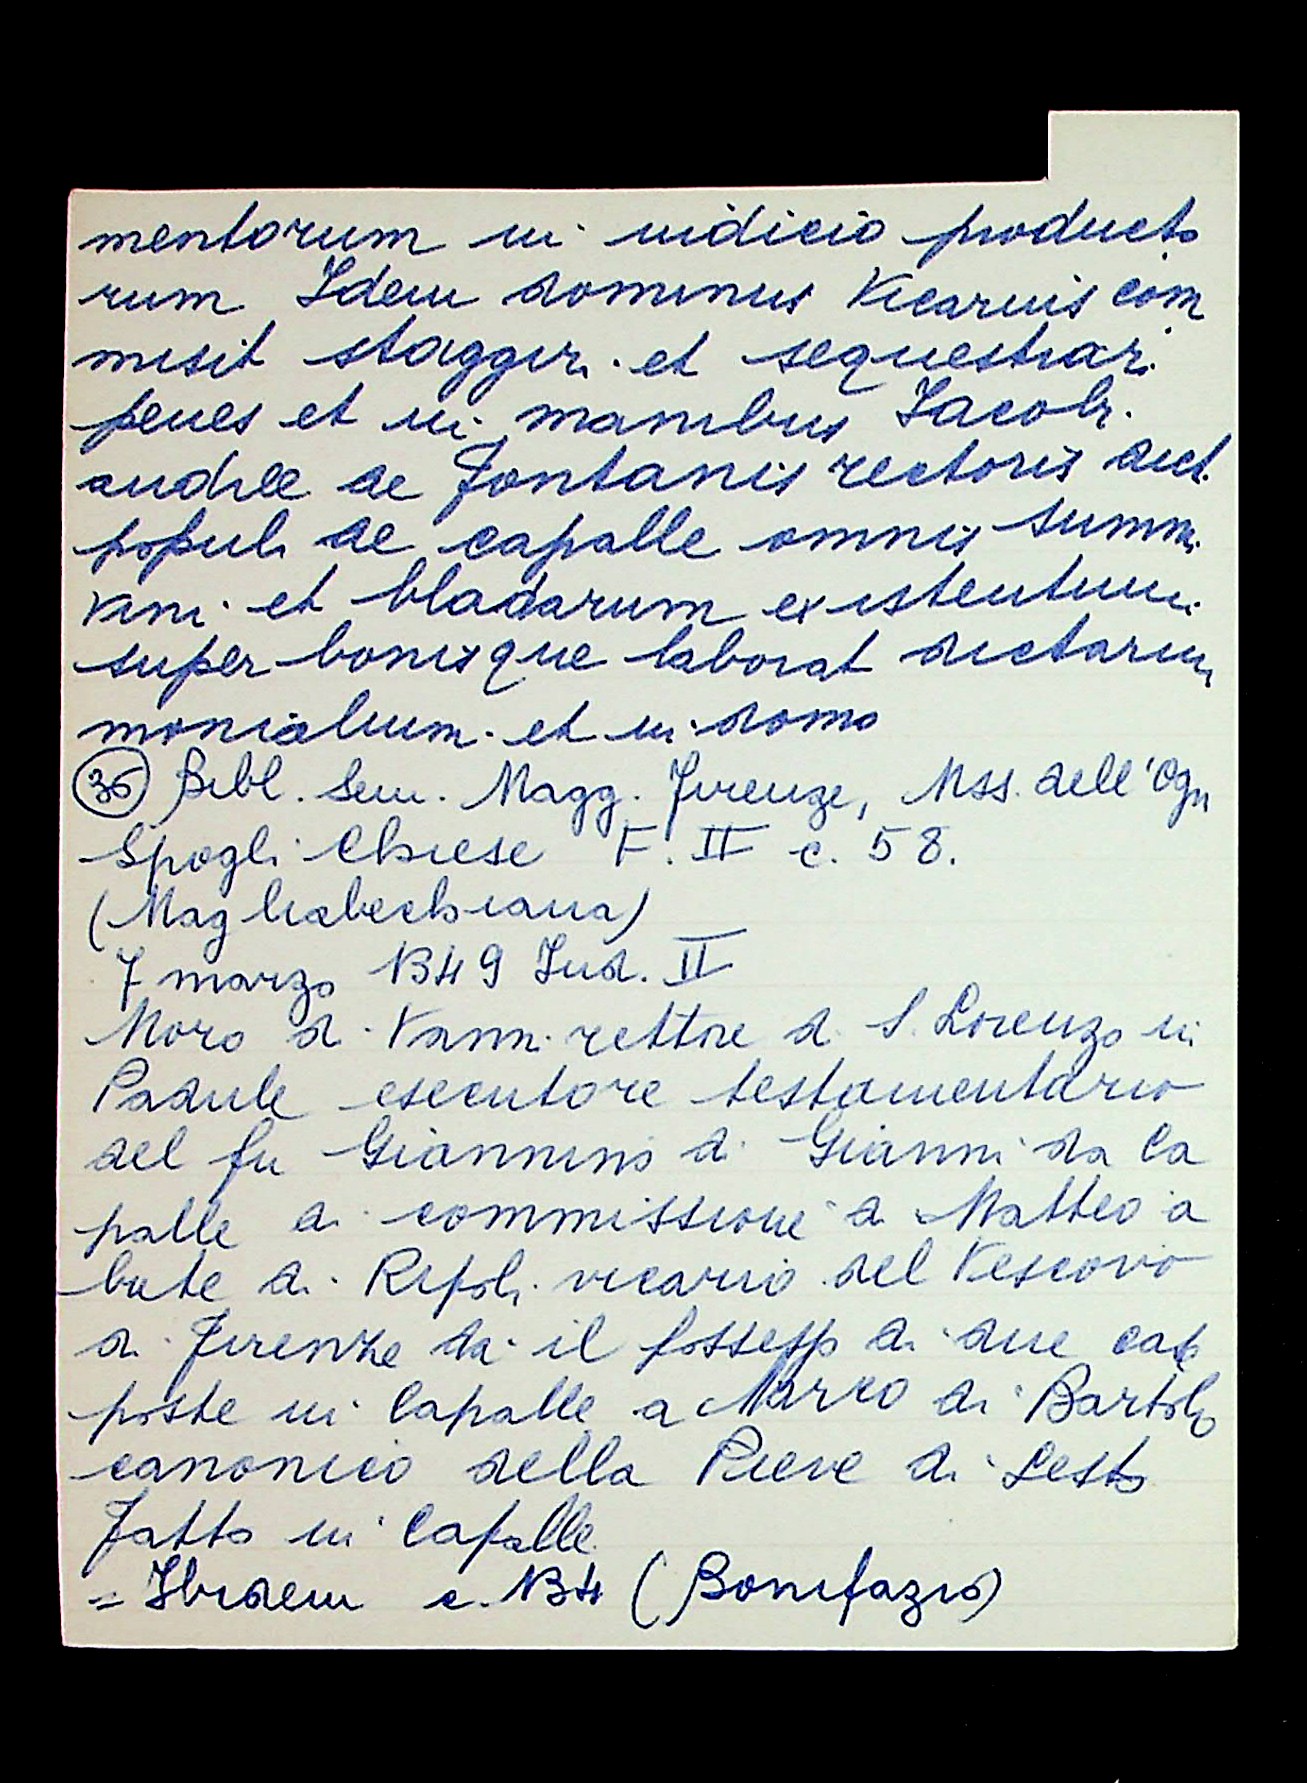 mentorum in iudicio producto
rum Idem dominus Vicarius com
misit staggiri et sequestrari
penes et in manibus Iacobi
de Fontanis rectoris dicti
populi de Capalle omnis summi
vini et bladarum existentium
super bonis que laborat dictarum
monialium et in domo
(36) Bibl. Sem. Magg. Firenze, Mss. dell'Ogn
Spogli Chiese F. II c. 58.
(Magliabechiana)
7 marzo 1349 Ind. II
Moro di Vanni rettore di S. Lorenzo in
Padule esecutore testamentario
del fu Giannino di Gianni da Ca
palle di commissione di Matteo a
bate di Ripoli vicario del Vescovo
di Firenze dà il possesso di due case
poste in Capalle a Marco di Bartolo
canonico della Pieve di Sesto
Fatto in Capalle
= Ibidem c. 134 (Bonifazio)